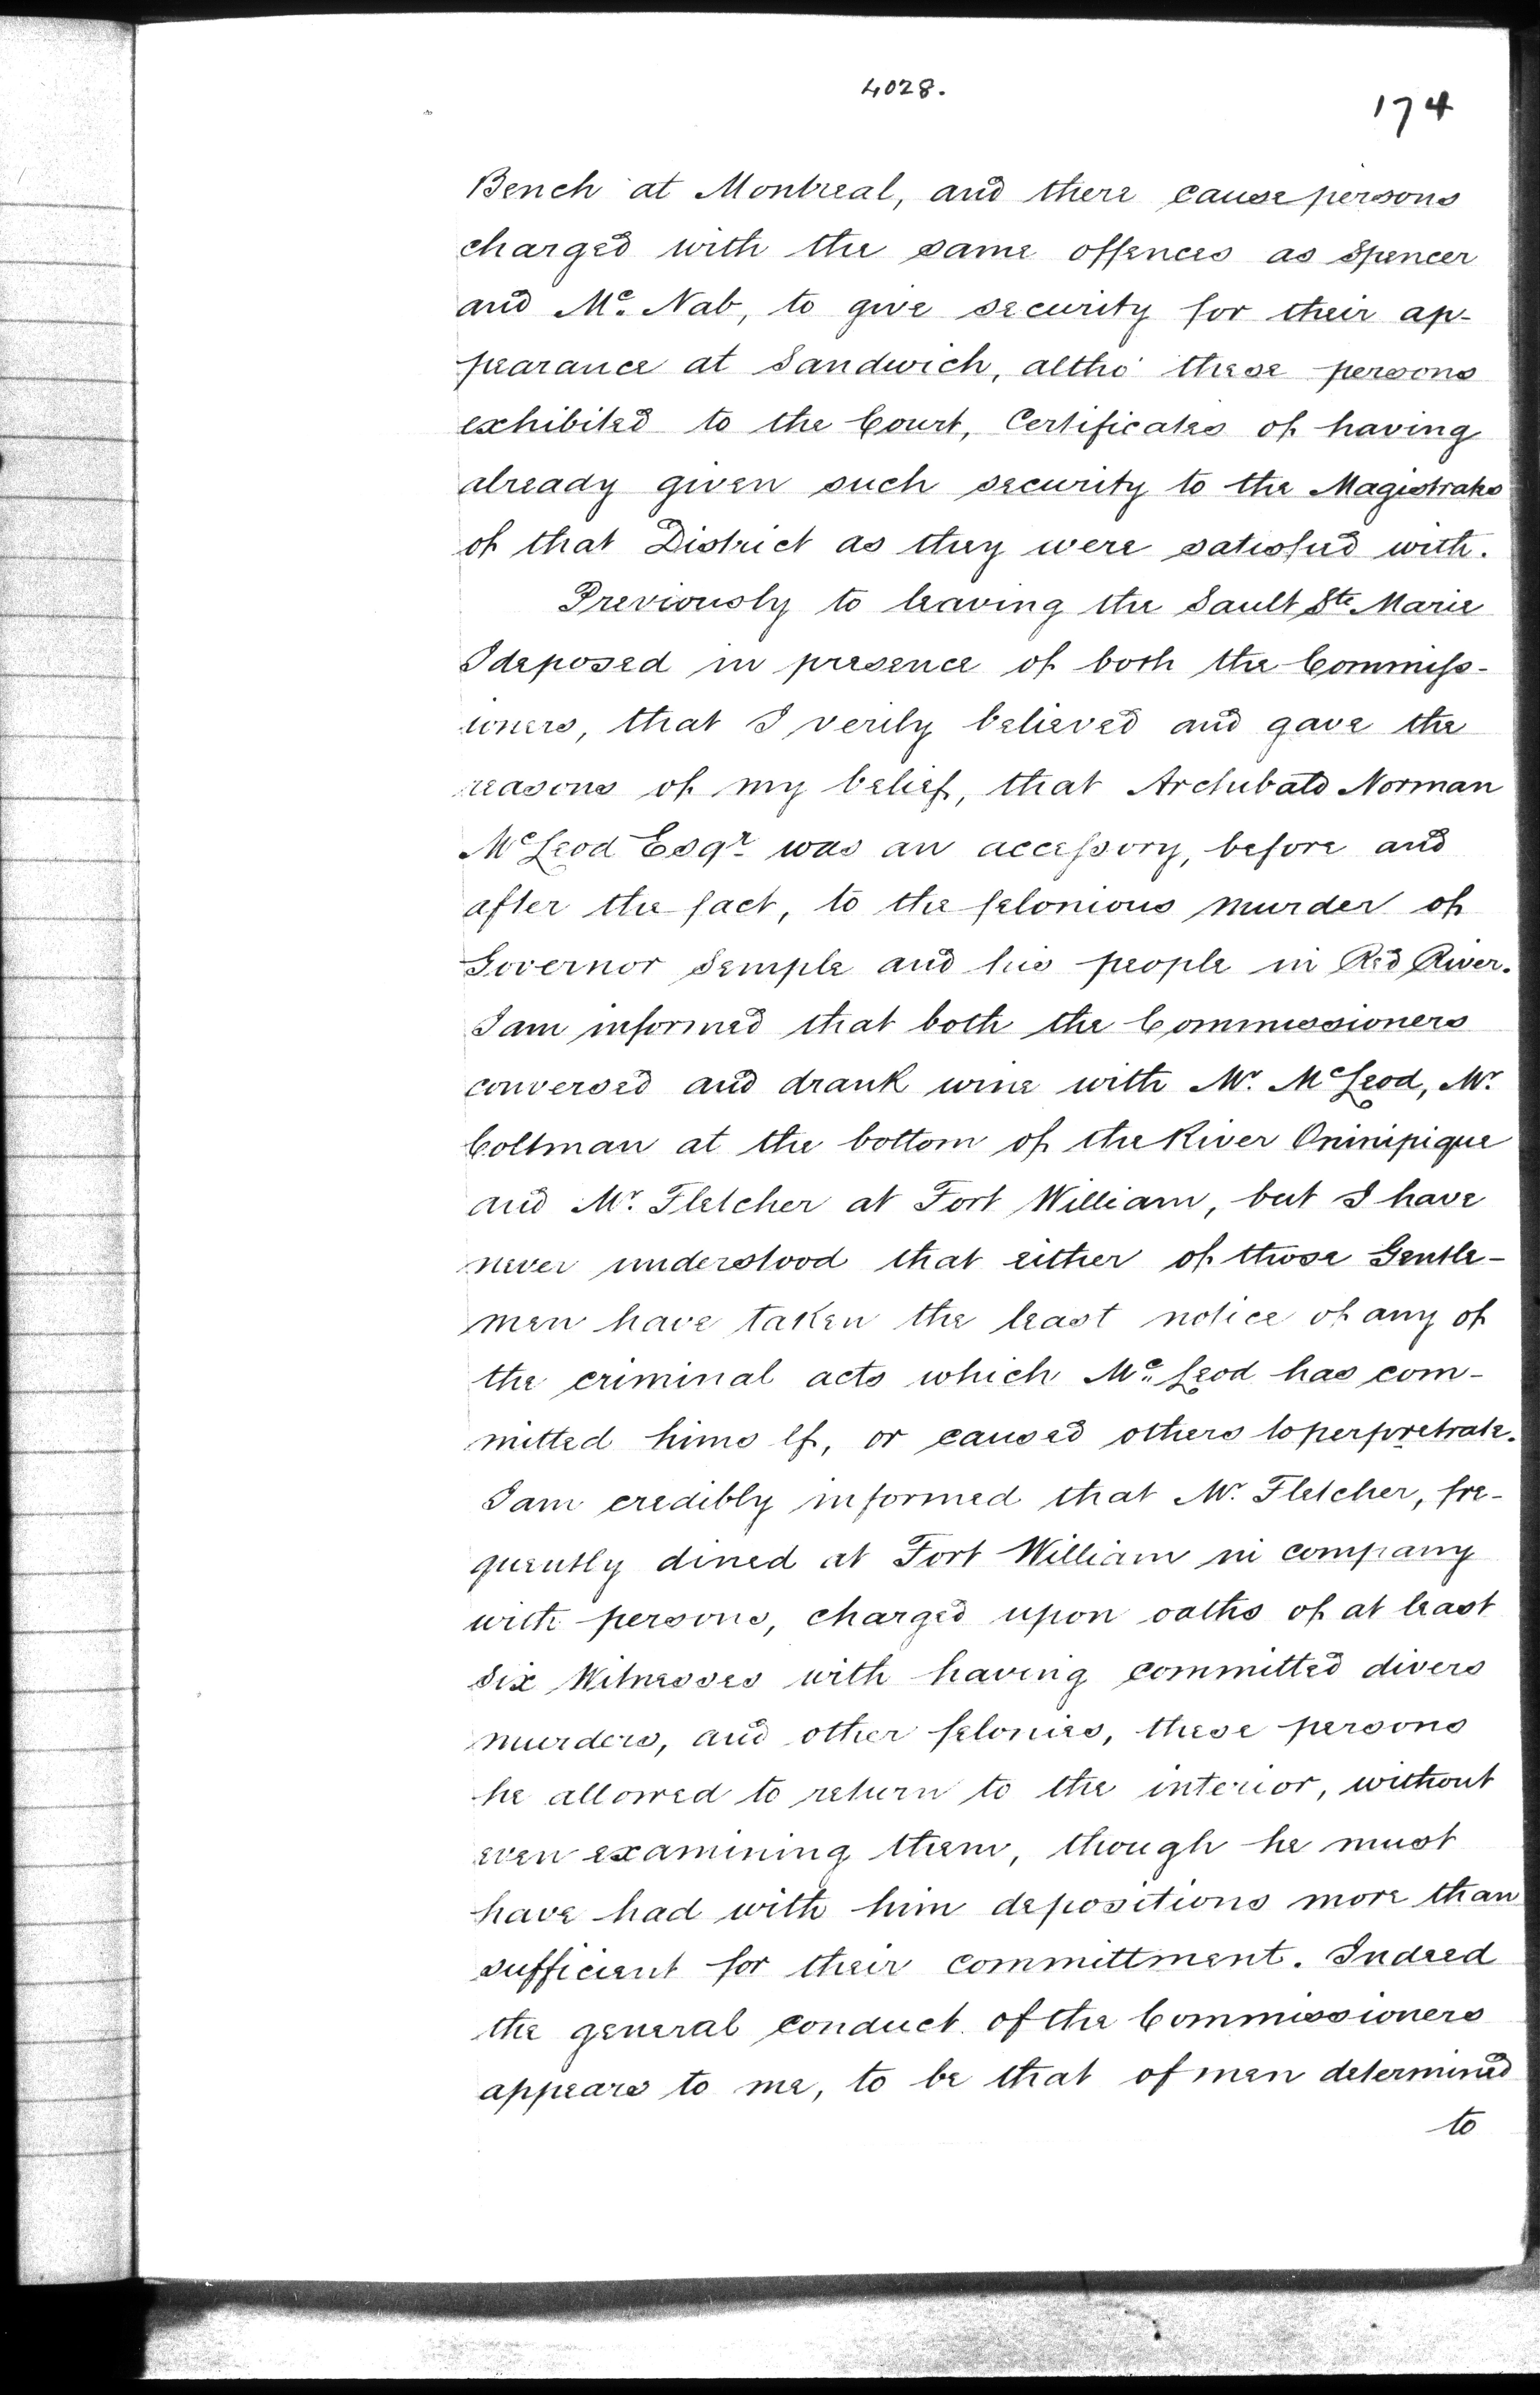 4028.
174
Bench at Montreal, and there cause persons
charged with the same offences as Spencer
and Mc. Nab, to give security for their ap-
pearance at Sandwich, altho' these persons
exhibited to the Court, Certificates of having
already given such security to the Magistrates
of that District as they were satisfied with.
Previously to leaving the Sault Ste Marie
I deposed in presence of both the Commiss-
ioners, that I verily believed and gave the
reasons of my belief, that Archibald Norman
McLeod Esqr. was an accessory, before and
after the fact, to the felonious murder of
Governor Semple and his people in Red River.
I am informed that both the Commissioners
conversed and drank wine with Mr. McLeod, Mr.
Coltman at the bottom of the River Oninipique
and Mr. Fletcher at Fort William, but I have
never understood that either of those Gentle-
men have taken the least notice of any of
the criminal acts which Mc. Leod has com-
mitted himself, or caused others to perpretrate.
I am credibly informed that Mr. Fletcher, fre-
quently dined at Fort William in company
with persons, charged upon oaths of at least
six Witnesses with having committed divers
murders, and other felonies, these persons
he allowed to return to the interior, without
even examining them, though he must
have had with him depositions more than
sufficient for their committment. Indeed
the general conduct of the Commissioners
appears to me, to be that of men determined
to